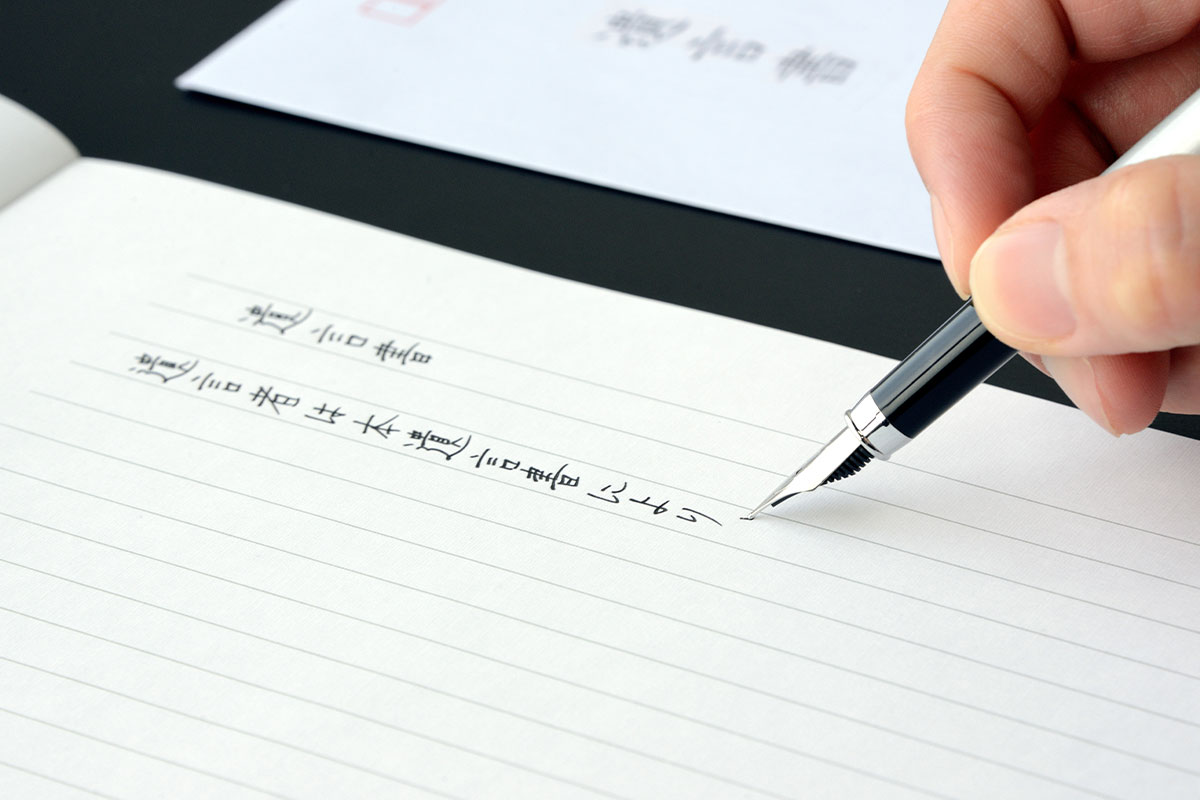 遺言書
遺言書
遺言者は本遺言書により